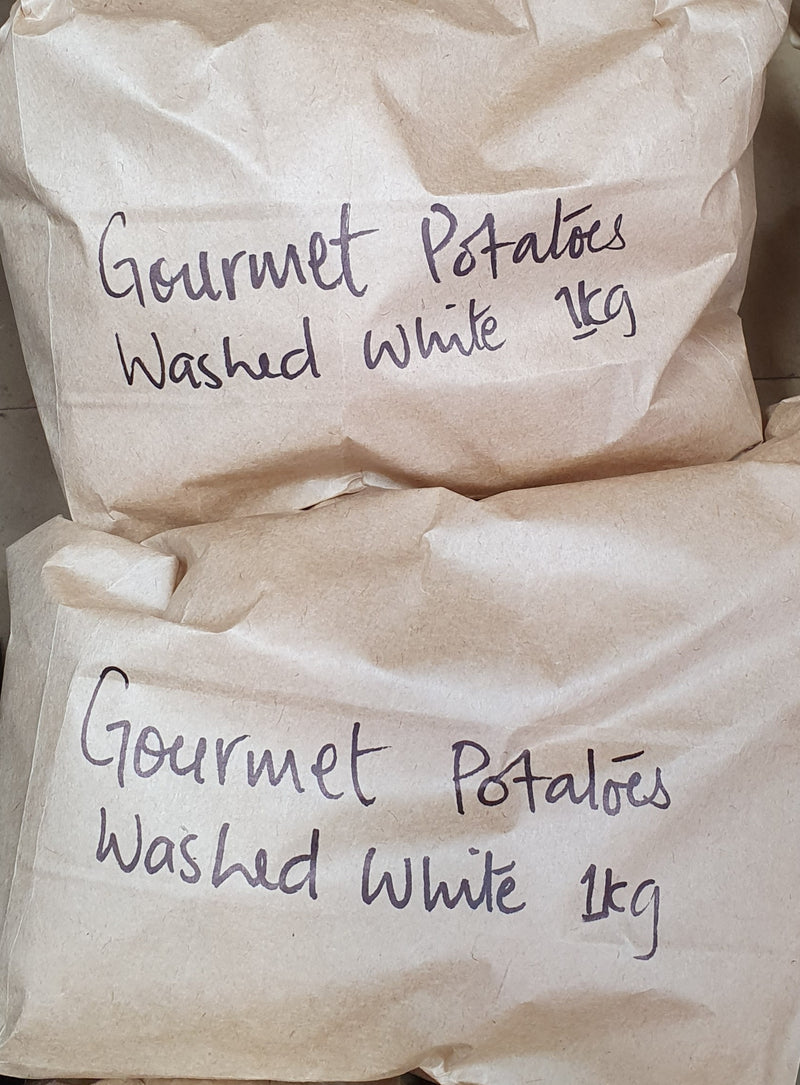 Gourmet Potatoes
Washed White 1kg
Gourmet Potatoes
Washed White 1kg